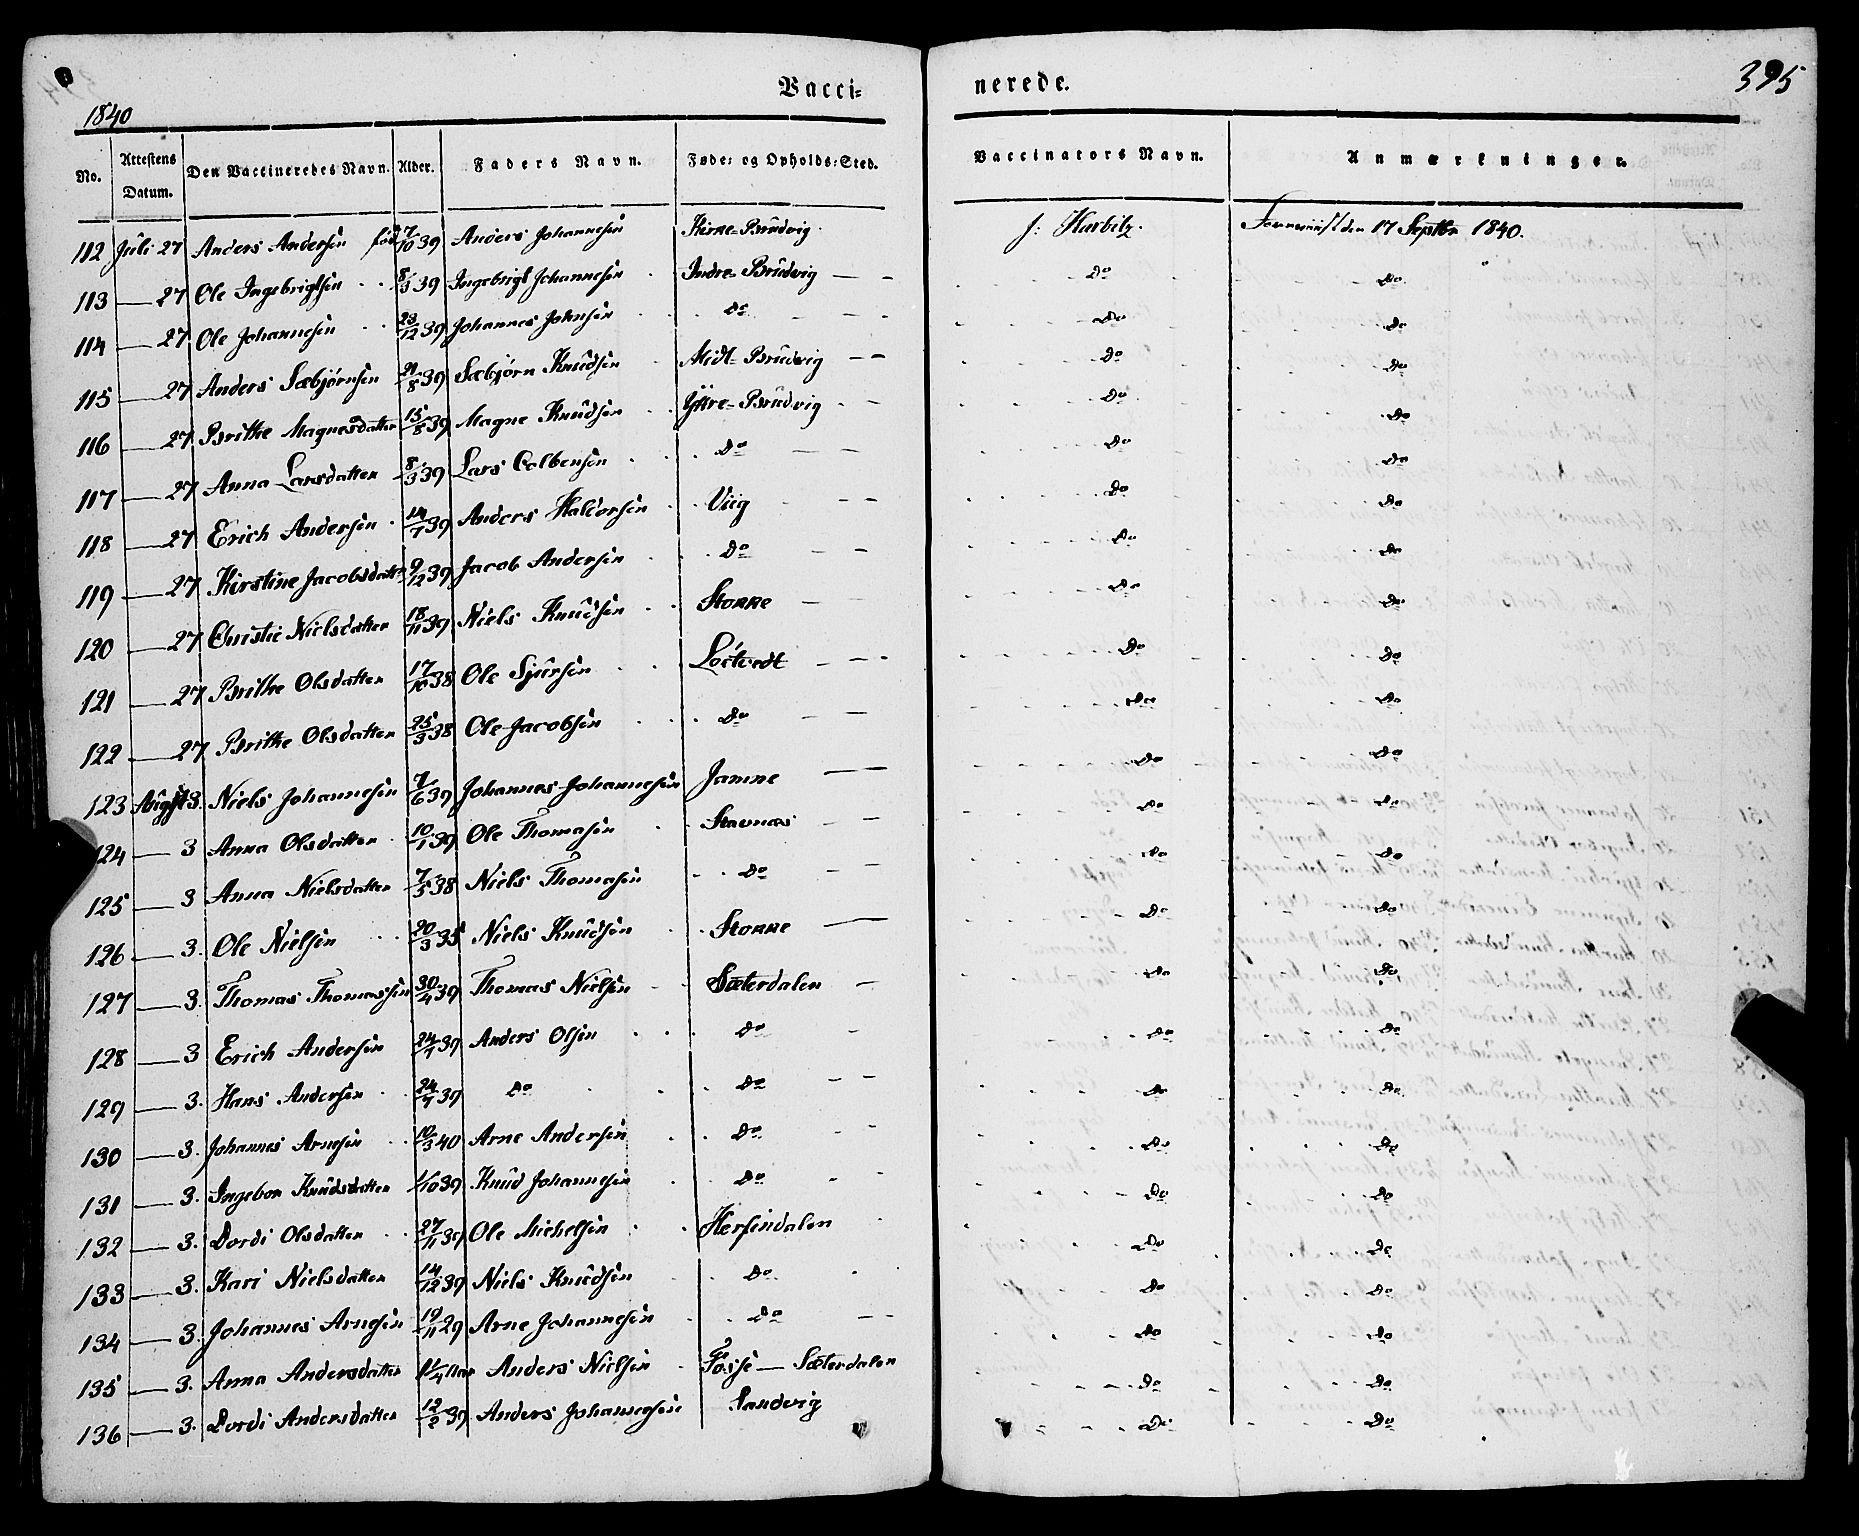 Vacci= nerede. 395
1840
No. Attestens Datum. Den Vaccineredes Navn. Alder. Faders Navn. Føde= og Opholds=Sted. Vaccinators Navn. Anmærkninger.
112 Juli 27 Anders Andersen fød 27/10 39 Anders Johannesen Kirne-Brudvig. Fremviist den 17 Septbr 1840.
113 — 27 Ole Ingebrigtsen 8/3 39 Ingebrigt Johannesen Indre-Brudvig — — Do Do
114 — 27 Ole Johannesen 23/12 39 Johannes Johnsen Do Do Do
115 — 27 Anders Sæbjørnsen 21/8 39 Sæbjørn Knudsen Midt-Brudvig — — Do Do
116 — 27 Brithe Magnesdatter 15/8 39 Magne Knudsen Yttre-Brudvig Do Do
117 — 27 Anna Larsdatter 8/3 39 Lars Colbensen Do Do Do
118 — 27 Erich Andersen 14/7 39 Anders Haldorsen Viig Do Do
119 — 27 Kirstine Jacobsdatter 9/12 39 Jacob Andersen Do Do Do
120 — 27 Christie Nielsdatter 18/11 39 Niels Knudsen Storre Do Do
121 — 27 Brithe Olsdatter 17/10 38 Ole Sjursen Do Do
122 — 27 Brithe Olsdatter 25/3 38 Ole Jacobsen Do Do Do
123 August 3. Niels Johannesen 7/6 39 Johannes Johannesen Jamne Do Do
124 — 3 Anna Olsdatter 10/1 39 Ole Thomasen Stavnæs Do Do
125 — 3 Anna Nielsdatter 7/5 38 Niels Thomasen Do Do Do
126 — 3. Ole Nielsen 20/3 35 Niels Knudsen Storre Do Do
127 — 3. Thomas Thomassen 30/4 39 Thomas Nielsen Sæterdalen Do Do
128 — 3 Erich Andersen 24/7 39 Anders Olsen Do Do Do
129 — 3. Hans Andersen 24/7 39 Do Do Do Do
130 — 3. Johannes Arnesen 10/3 40 Arne Andersen Do Do Do
131 — 3. Ingebor Knudsdatter 1/10 39 Knud Johannesen Do Do Do
132 — 3. Dordi Olsdatter 27/11 39 Ole Michelsen Hersindalen Do Do
133 — 3. Kari Nielsdatter 14/12 39 Niels Knudsen Do Do Do
134 — 3. Johannes Arnesen 19/11 29 Arne Johannesen Do Do Do
135 — 3. Anna Andersdatter Anders Nielsen Fosse — Sæterdalen Do Do
136 — 3. Dordi Andersdatter 12/2 39 Anders Johannesen Sandvig Do Do